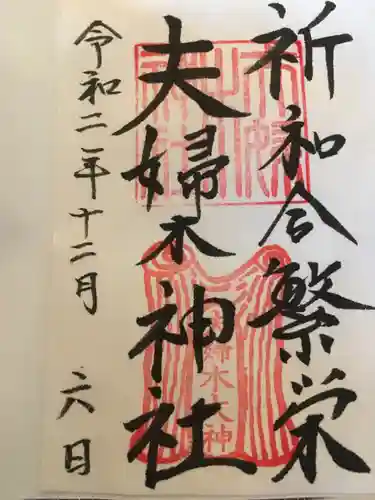 祈和合繁栄
夫婦木神社
令和二年十二月二八日
夫婦木大神